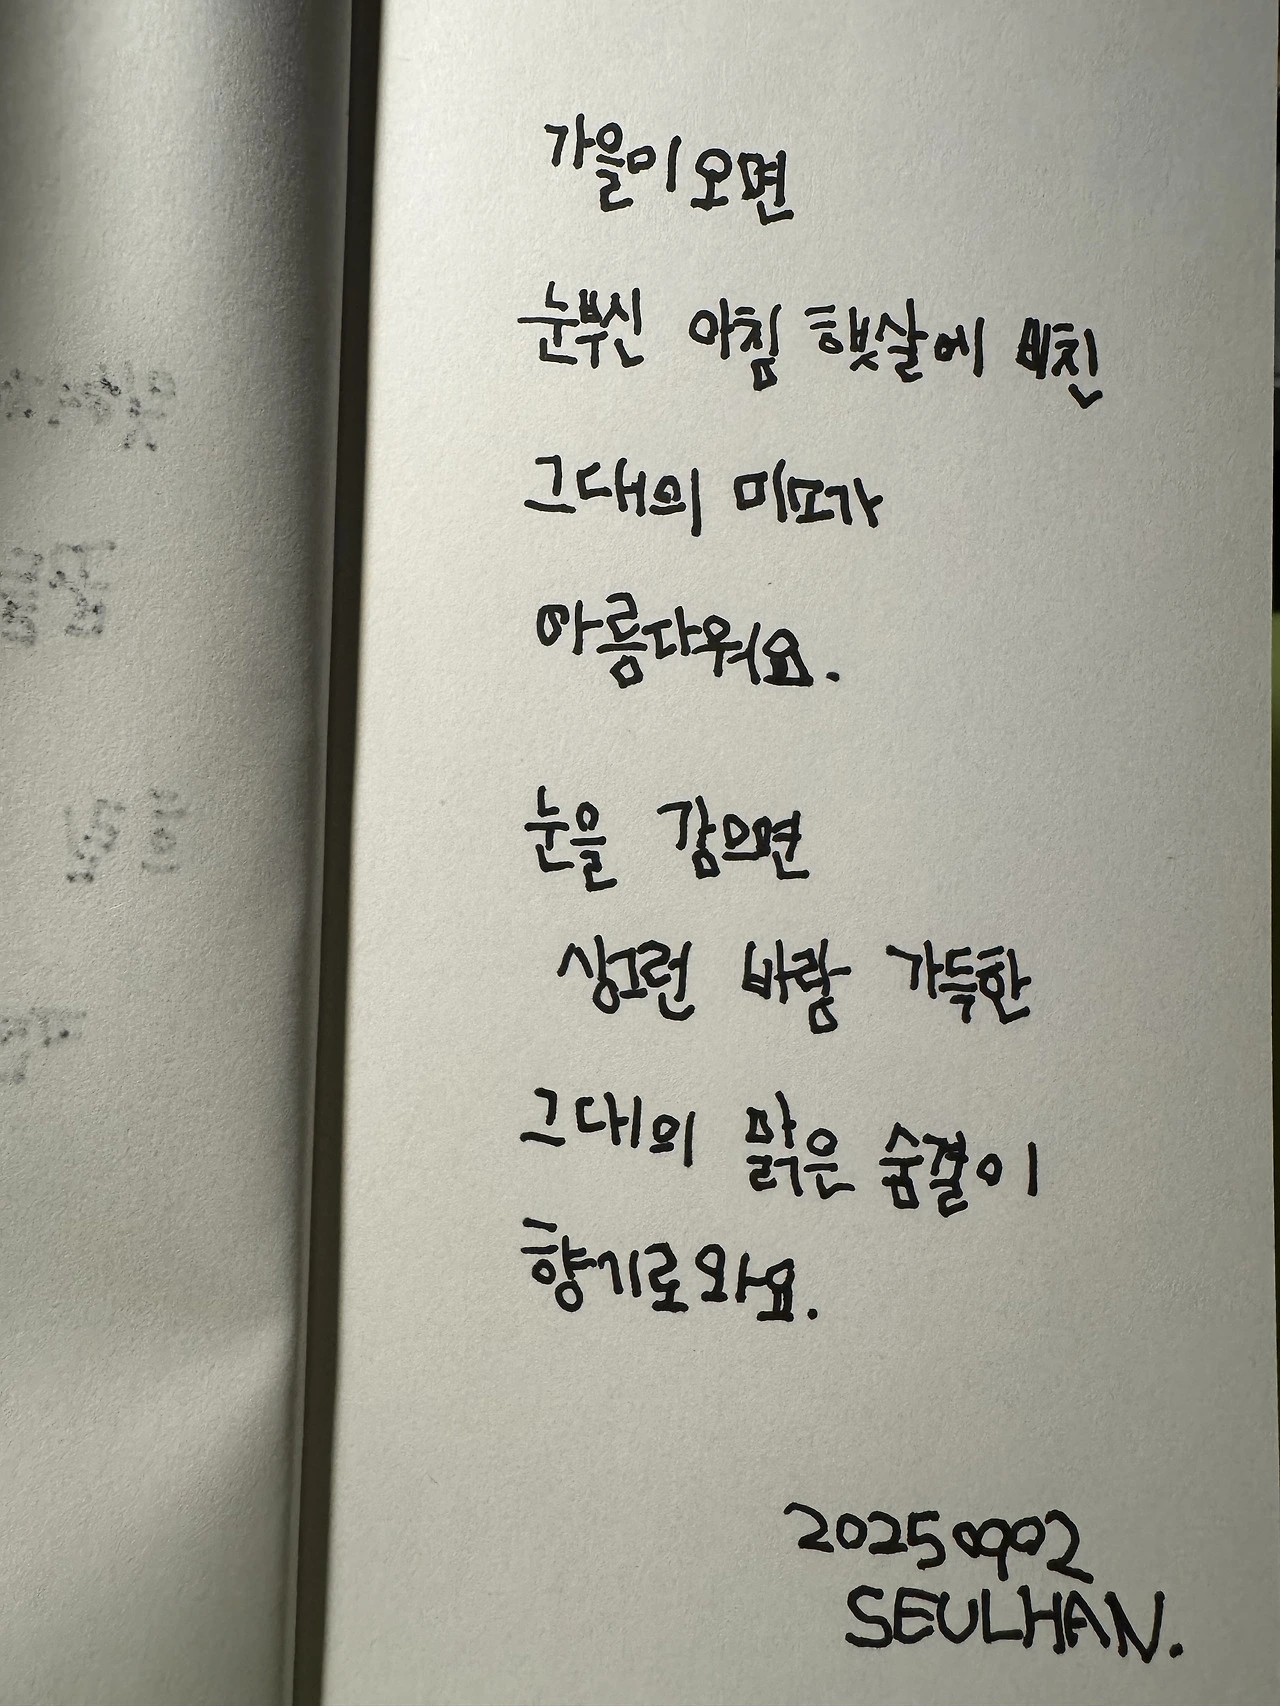 가을이 오면
눈부신 아침 햇살에 비친
그대의 미모가
아름다워요.
눈을 감으면
싱그런 바람 가득한
그대의 맑은 숨결이
향기로와요.
20250902
SEULHAN.